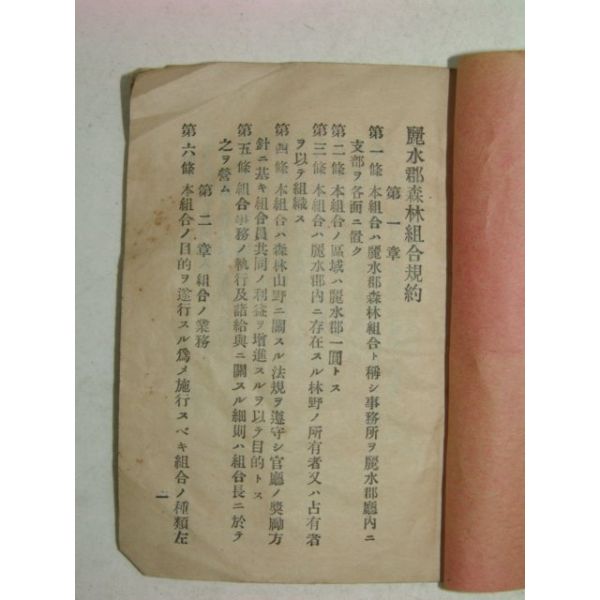 麗水郡森林組合規約
第一章
第一條 本組合ハ麗水郡森林組合ト稱シ事務所ヲ麗水郡廳內ニ
支部ヲ各面ニ置ク
第二條 本組合ノ區域ハ麗水郡一圓トス
第三條 本組合ハ麗水郡內ニ存在スル林野ノ所有者又ハ占有者
ヲ以テ組織ス
第四條 本組合ハ森林山野ニ關スル法規ヲ遵守シ官廳ノ奬勵方
針ニ基キ組合員共同ノ利益ヲ增進スルヲ以テ目的トス
第五條 組合事務ノ執行及諸給與ニ關スル細則ハ組合長ニ於テ
之ヲ營ム
第二章 組合ノ業務
第六條 本組合ノ目的ヲ遂行スル爲メ施行スベキ組合ノ種類左
一